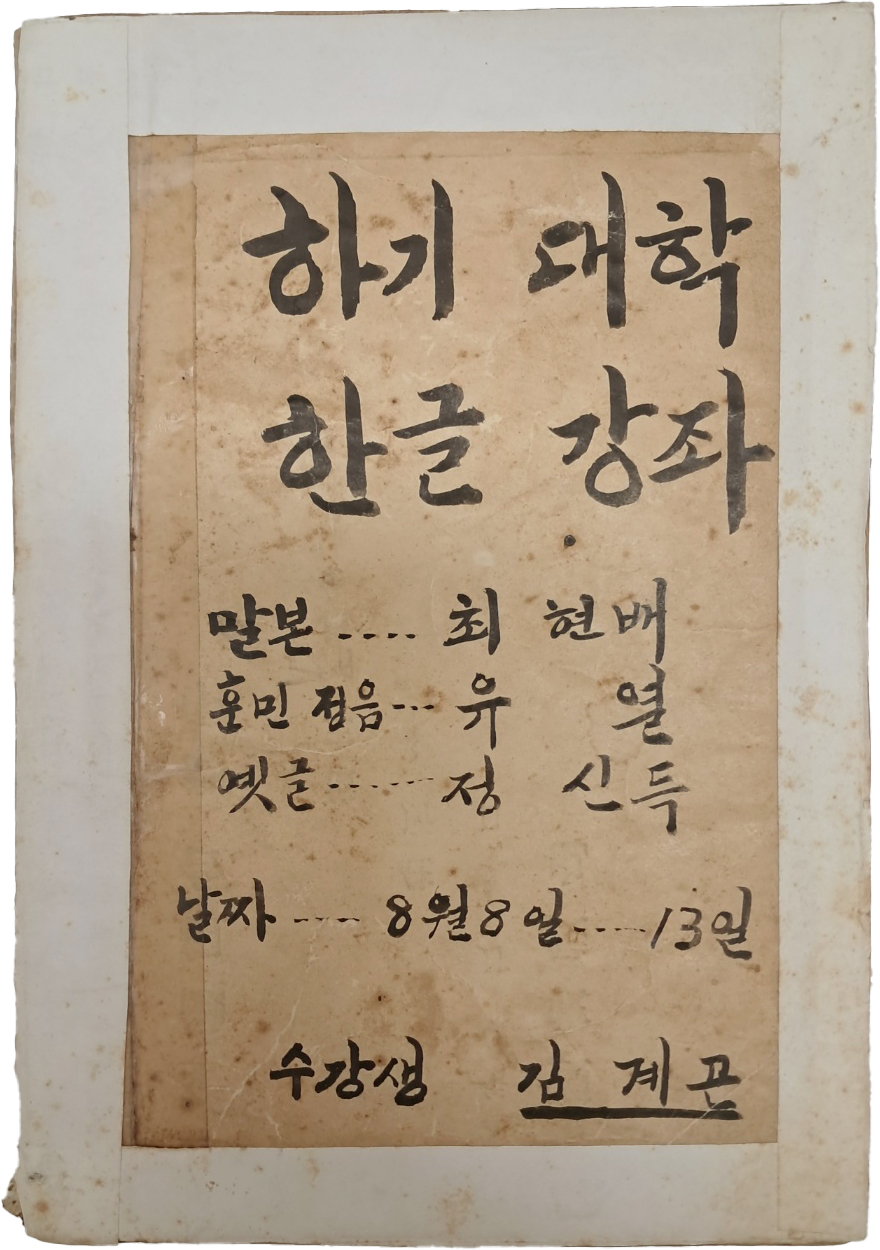 하기 대학
한글 강좌
말본 .... 최 현배
훈민 정음... 유 열
옛글 ....... 정 신득
날짜 ..... 8월8일.....13일
수강생 김 계곤